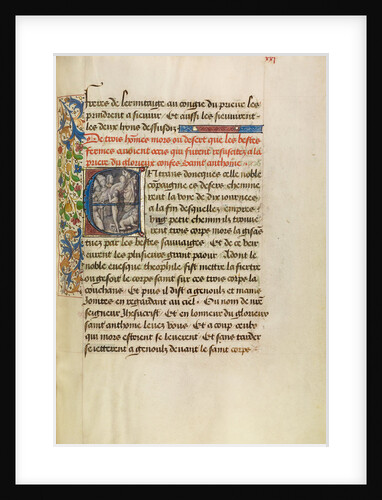 xxj
freres de lermitaige au congie du prieur les
prindrent a sieuvir. Et aussi les sieuvirent
les deux lyons dessusdiz
De trois hommes mors ou desert que les bestes
feirent avoient occis qui furent resuscitez a la
priere du glorieux confes saint anthoine
Eulx trans doncques celle noble
copaignie ces desers chemine
rent la voye de dix iournees
a la fin desquelles empres
vng petit chemin ilz trouve
rent trois corps mors la gisans
tuez par les bestes sauvaiges. Et de ce veir
eurent les plusieurs grant paour. Adont le
noble evesque theophile fist mettre la fiertre
ou gesoit le corps saint sur ces trois corps la
couchans. Et puis il dist a genoulz et mains
jointes en regardant au ciel. Ou nom de nre
seigneur Jhesucrist. Et en lonneur du glorieux
saint anthoine levez vous. Et a coup ceulx
qui mors estoient se leverent. Et sans tarder
se jetterent a genoulz devant le saint corps.